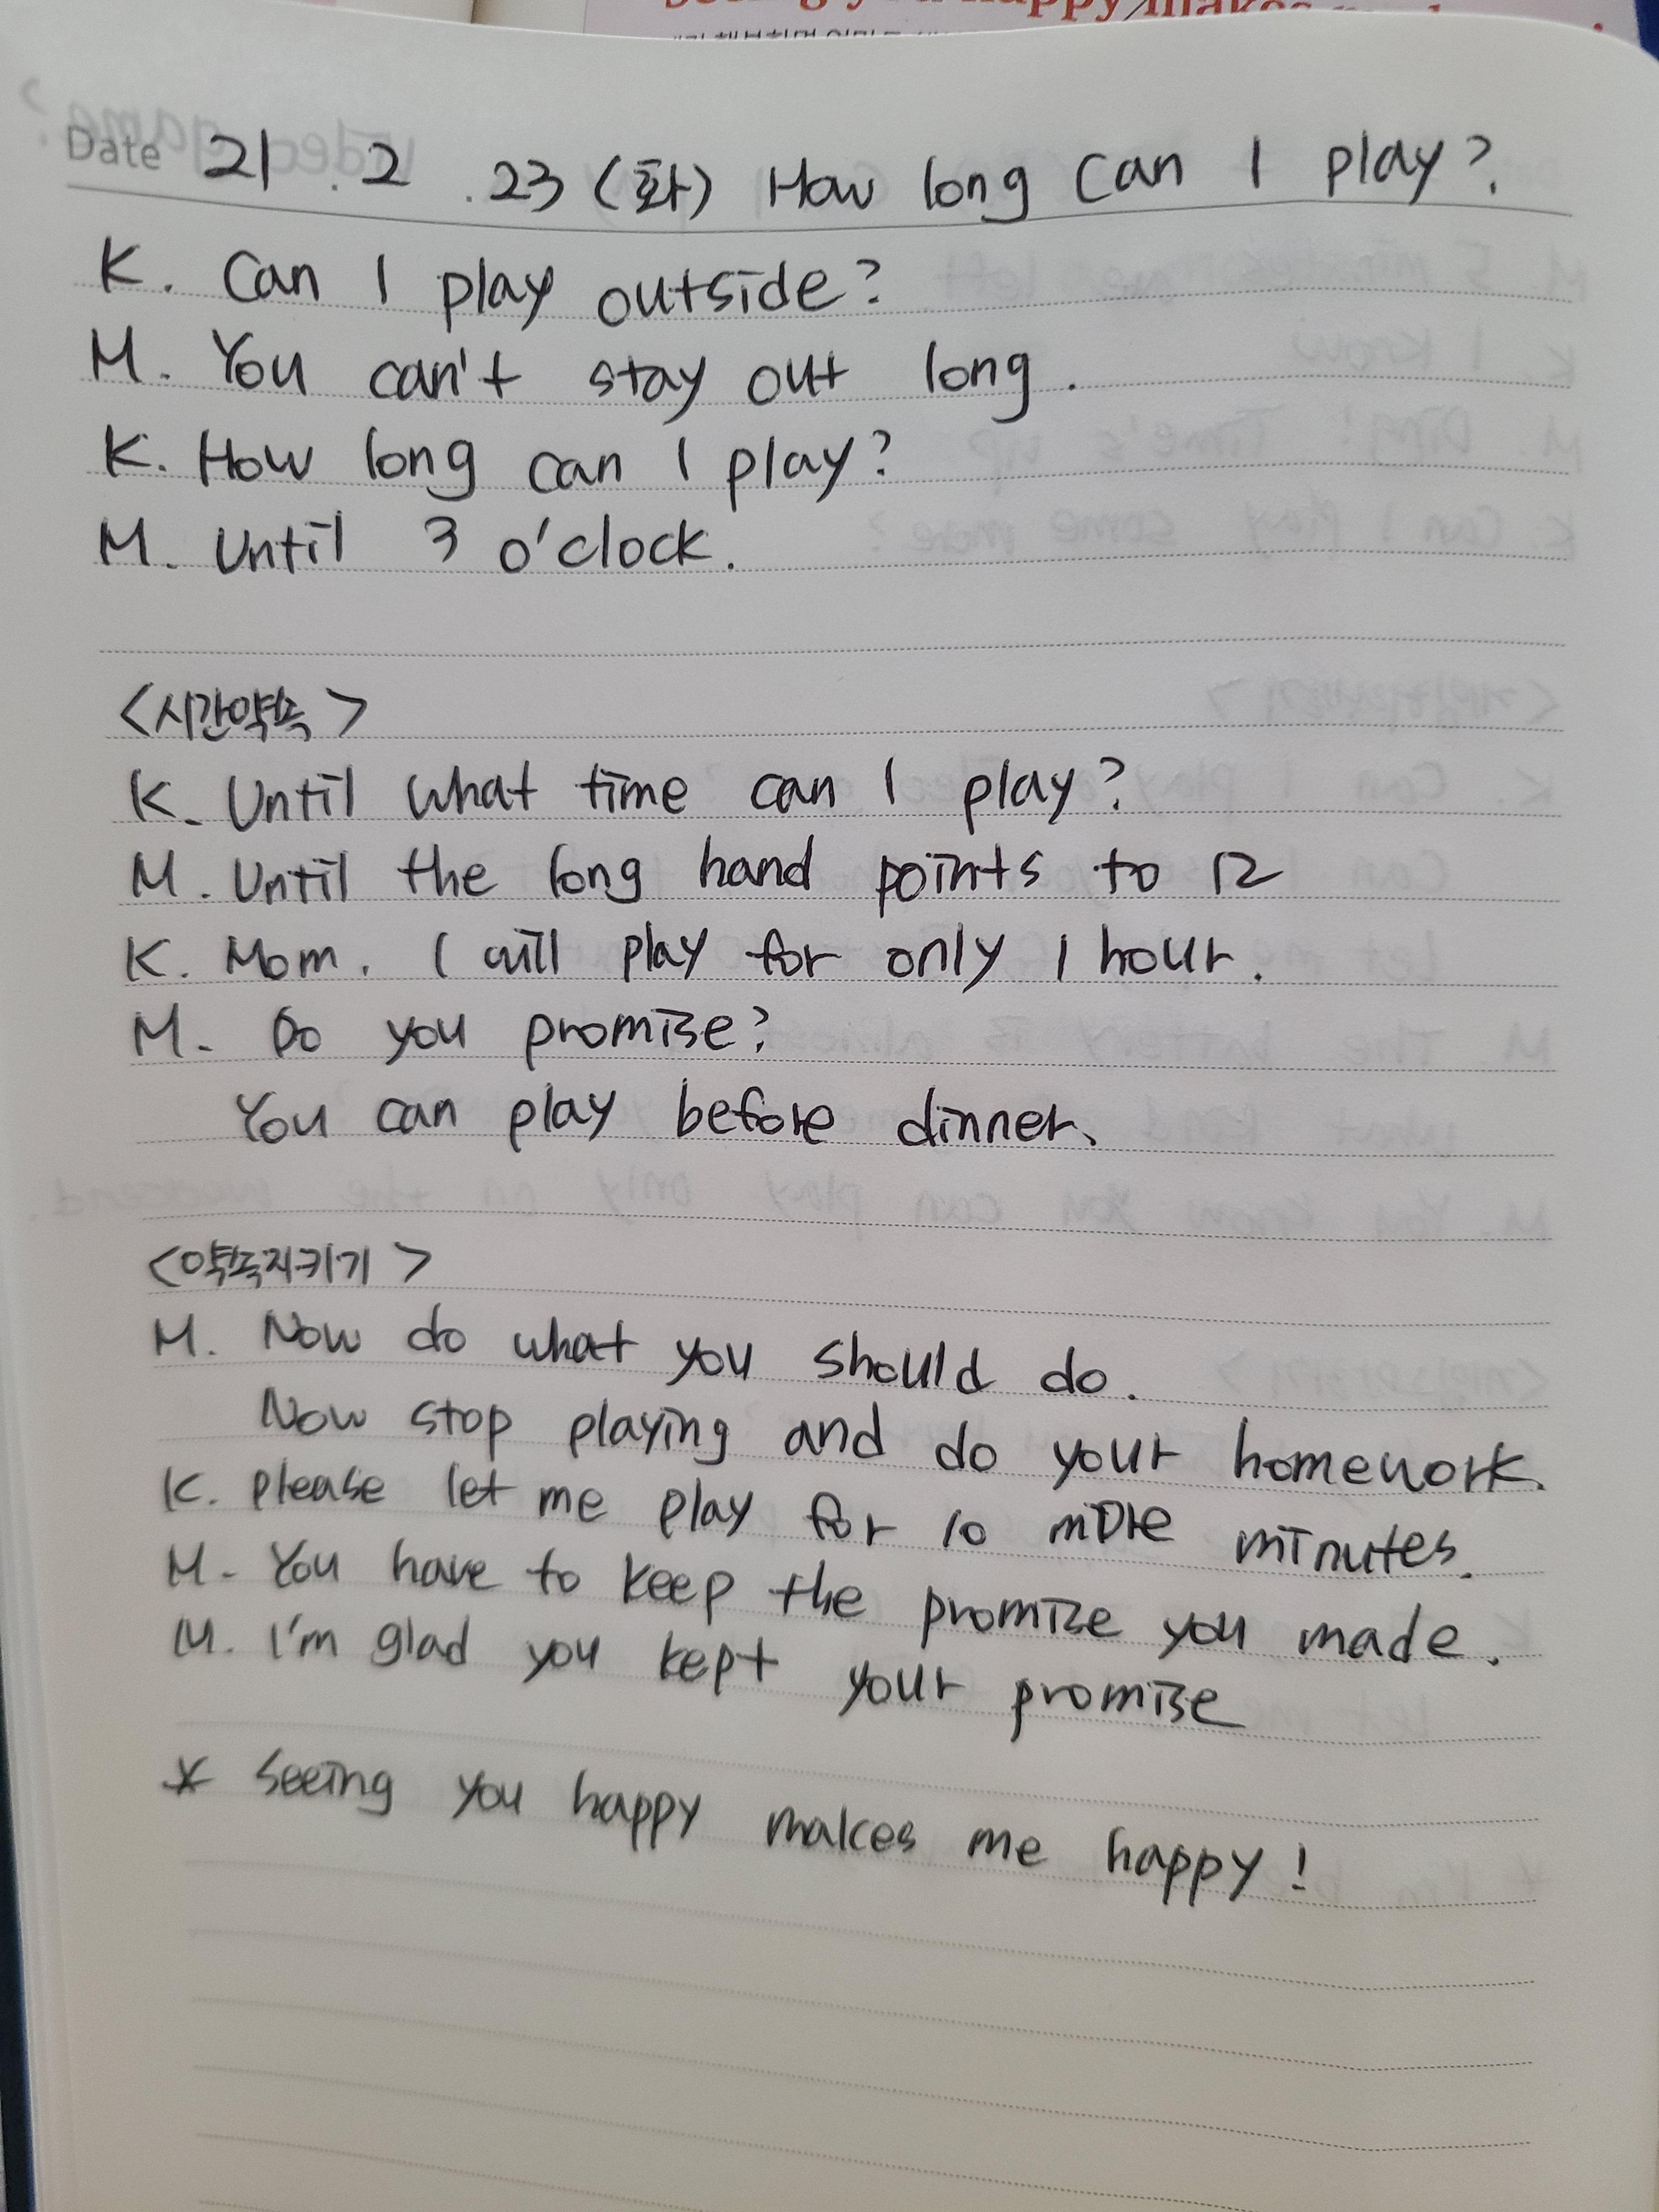 Seeing you happy makes
Date 21 . 2 . 23 (화) How long can I play?
K. Can I play outside?
M. You can't stay out long.
K. How long can I play?
M. Until 3 o'clock.
<시간약속>
K. Until what time can I play?
M. Until the long hand points to 12
K. Mom. I will play for only 1 hour.
M. Do you promise?
You can play before dinner.
<약속지키기>
M. Now do what you should do.
Now stop playing and do your homework.
K. please let me play for 10 more minutes.
M. You have to keep the promise you made.
M. I'm glad you kept your promise
* Seeing you happy makes me happy!